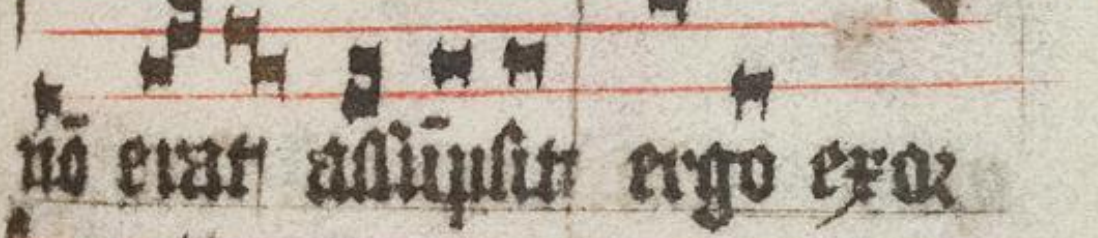 nō erat assūpsit ergo exor